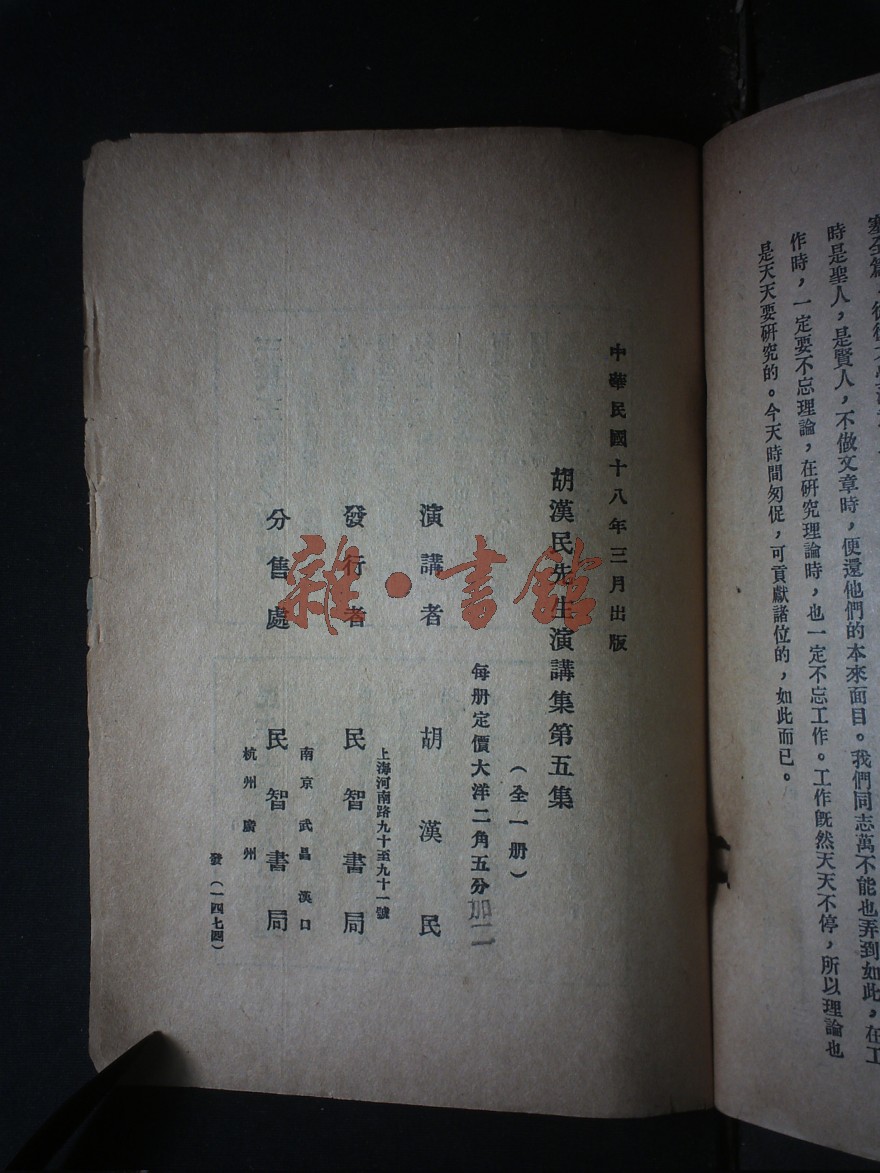 時是聖人，是賢人，不做文章時，便還他們的本來面目。我們同志萬不能也弄到如此，在工
作時，一定要不忘理論，在研究理論時，也一定不忘工作。工作既然天天不停，所以理論也
是天天要研究的。今天時間匆促，可貢獻諸位的，如此而已。
中華民國十八年三月出版
胡漢民先生演講集第五集
（全一册）
每册定價大洋二角五分
演講者 胡漢民
上海河南路九十至九十一號
發行者 民智書局
南京 武昌 漢口
分售處 民智書局
杭州 廣州
發（一四七四）
雜·書館